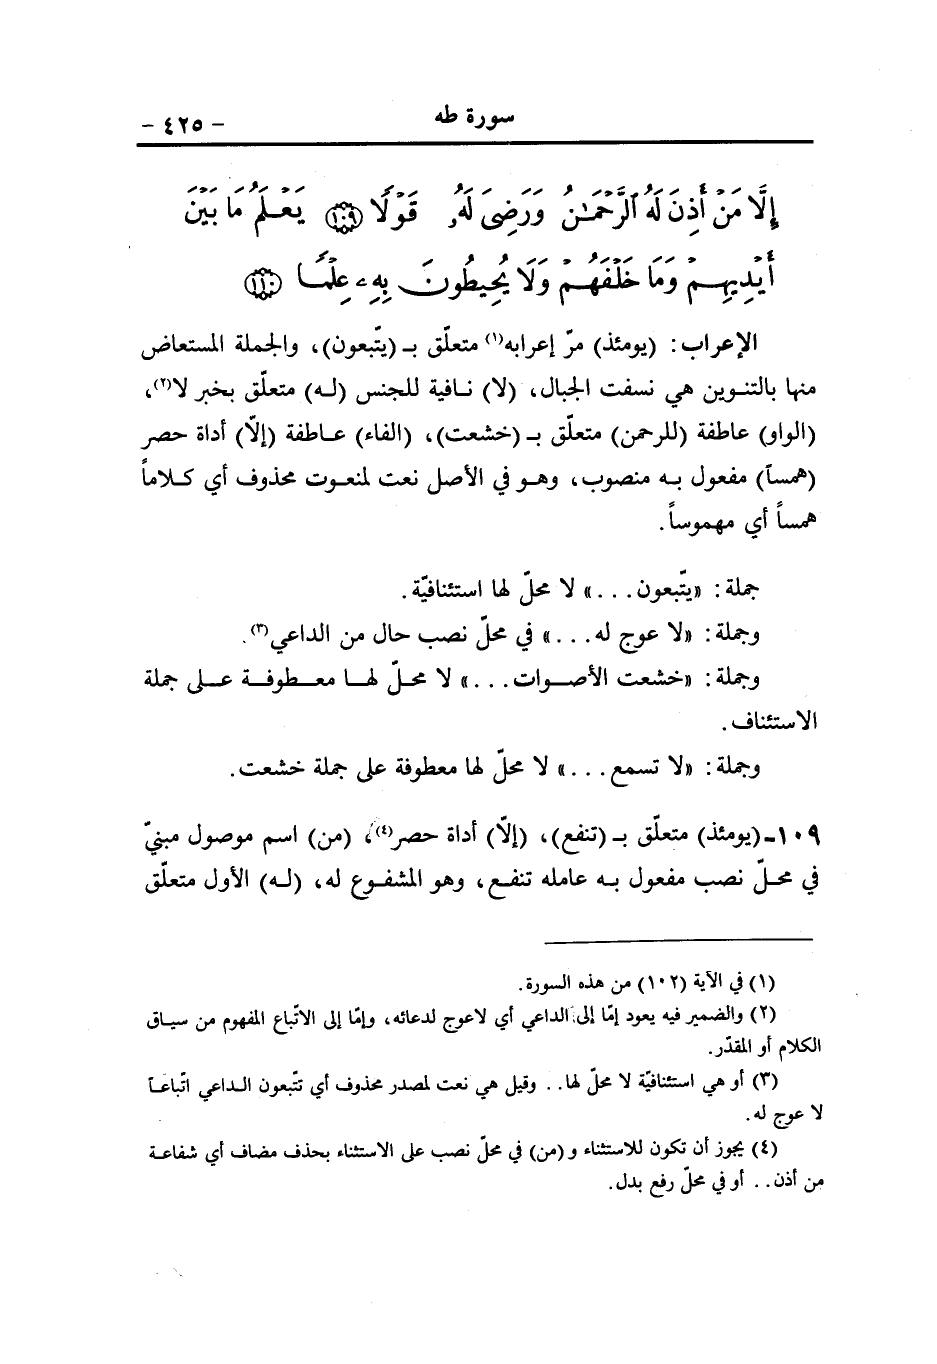 سورة طه
- ٤٢٥ -
إِلَّا مَنْ أَذِنَ لَهُ ٱلرَّحْمَـٰنُ وَرَضِىَ لَهُۥ قَوْلًا ﴿١٠٩﴾ يَعْلَمُ مَا بَيْنَ
أَيْدِيهِمْ وَمَا خَلْفَهُمْ وَلَا يُحِيطُونَ بِهِۦ عِلْمًا ﴿١١٠﴾
الإعراب: (يومئذ) مرّ إعرابه(١) متعلّق بـ (يتّبعون)، والجملة المستعاض
منها بالتنوين هي نسفت الجبال، (لا) نافية للجنس (له) متعلّق بخبر لا(٢)،
(الواو) عاطفة (للرحمن) متعلّق بـ (خشعت)، (الفاء) عاطفة (إلّا) أداة حصر
(همساً) مفعول به منصوب، وهو في الأصل نعت لمنعوت محذوف أي كلاماً
همساً أي مهموساً.
جملة: «يتّبعون...» لا محلّ لها استئنافيّة.
وجملة: «لا عوج له...» في محلّ نصب حال من الداعي(٣).
وجملة: «خشعت الأصوات...» لا محلّ لها معطوفة على جملة
الاستئناف.
وجملة: «لا تسمع...» لا محلّ لها معطوفة على جملة خشعت.
١٠٩- (يومئذ) متعلّق بـ (تنفع)، (إلّا) أداة حصر(٤)، (من) اسم موصول مبنيّ
في محلّ نصب مفعول به عامله تنفع، وهو المشفوع له، (له) الأول متعلّق
(١) في الآية (١٠٢) من هذه السورة.
(٢) والضمير فيه يعود إمّا إلى الداعي أي لاعوج لدعائه، وإمّا إلى الاتّباع المفهوم من سياق
الكلام أو المقدّر.
(٣) أو هي استئنافيّة لا محلّ لها.. وقيل هي نعت لمصدر محذوف أي تتّبعون الداعي اتّباعاً
لا عوج له.
(٤) يجوز أن تكون للاستثناء و (من) في محلّ نصب على الاستثناء بحذف مضاف أي شفاعة
من أذن.. أو في محلّ رفع بدل.